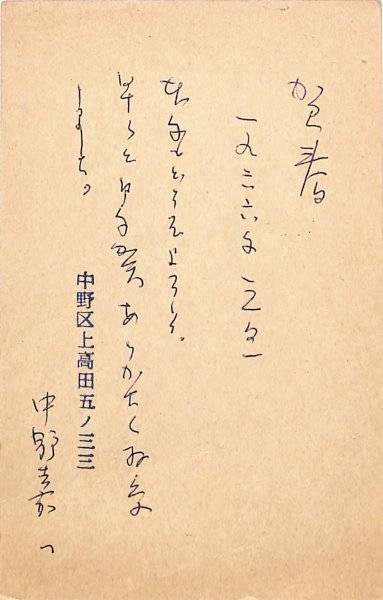 賀春
一九六六年 元旦
本年もどうぞよろしく。
早々と御年賀ありがたくお受
しました。
中野区上高田五ノ三三
中野嘉一